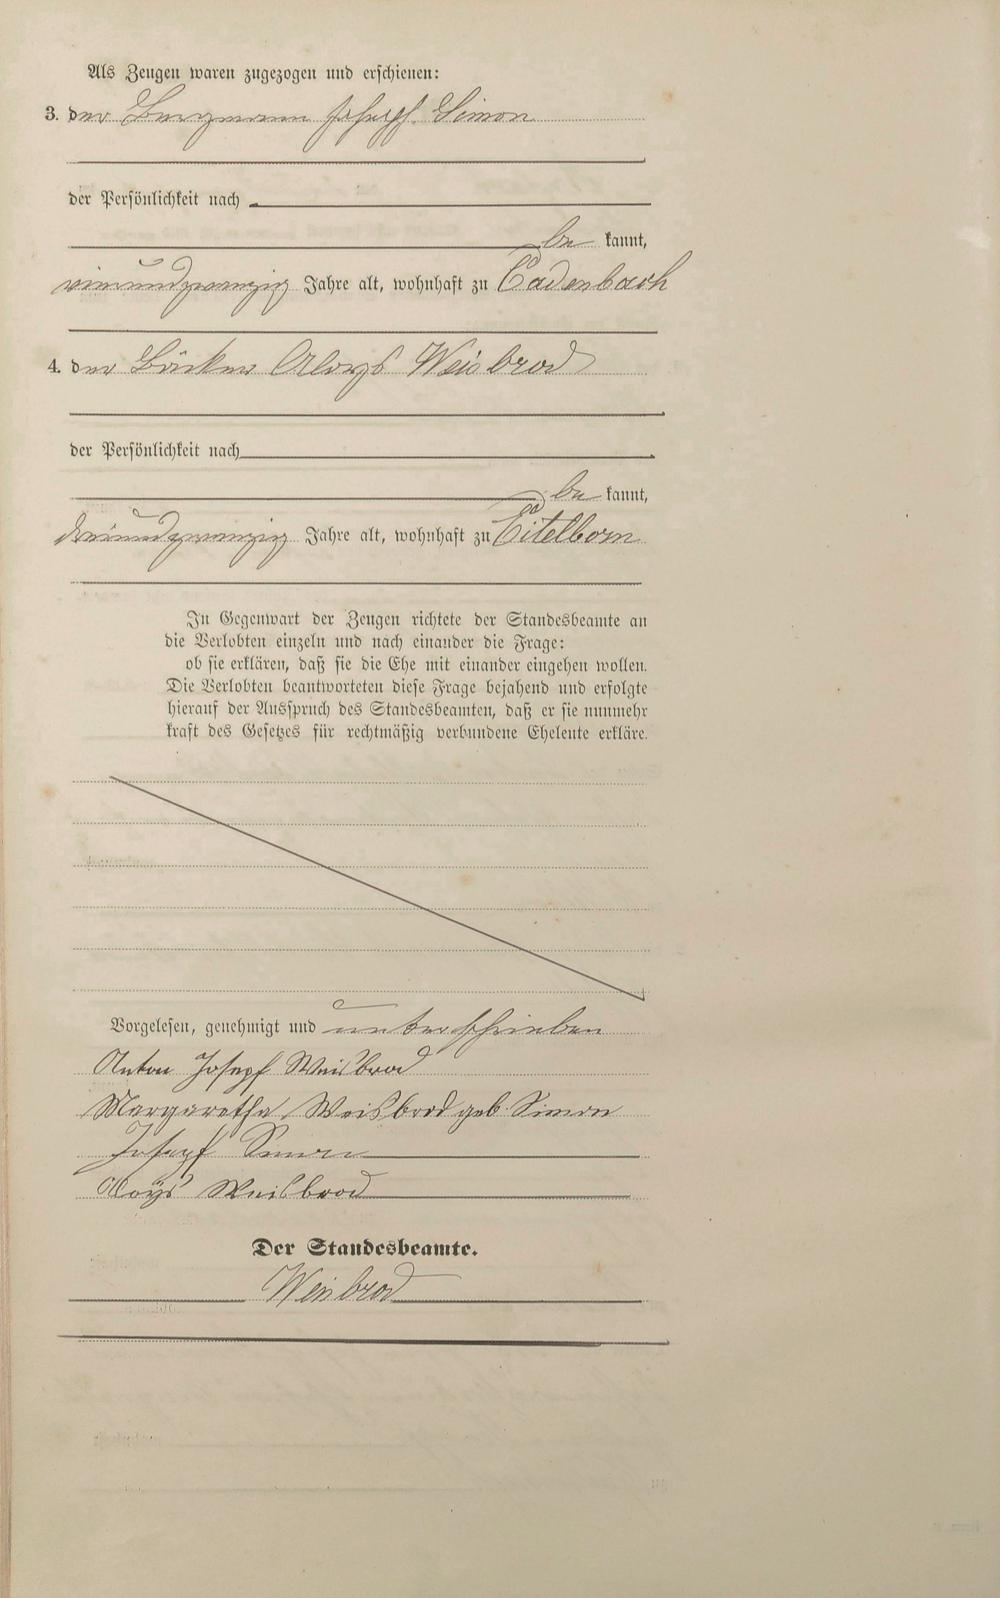 Als Zeugen waren zugezogen und erschienen:
3. der Bergmann Joseph Simon
der Persönlichkeit nach
be kannt,
Jahre alt, wohnhaft zu Cadenbach
4. der Bäcker Aloys Weisbrod
der Persönlichkeit nach
be kannt,
dreiundzwanzig Jahre alt, wohnhaft zu Eitelborn
In Gegenwart der Zeugen richtete der Standesbeamte an
die Verlobten einzeln und nach einander die Frage:
ob sie erklären, daß sie die Ehe mit einander eingehen wollen.
Die Verlobten beantworteten diese Frage bejahend und erfolgte
hierauf der Ausspruch des Standesbeamten, daß er sie nunmehr
kraft des Gesetzes für rechtmäßig verbundene Eheleute erkläre.
Vorgelesen, genehmigt und unterschrieben
Anton Josepf Weisbrod
Margaretha Weisbrod geb. Simon
Josepf Simon
Aloÿs Weisbrod
Der Standesbeamte.
Weisbrod